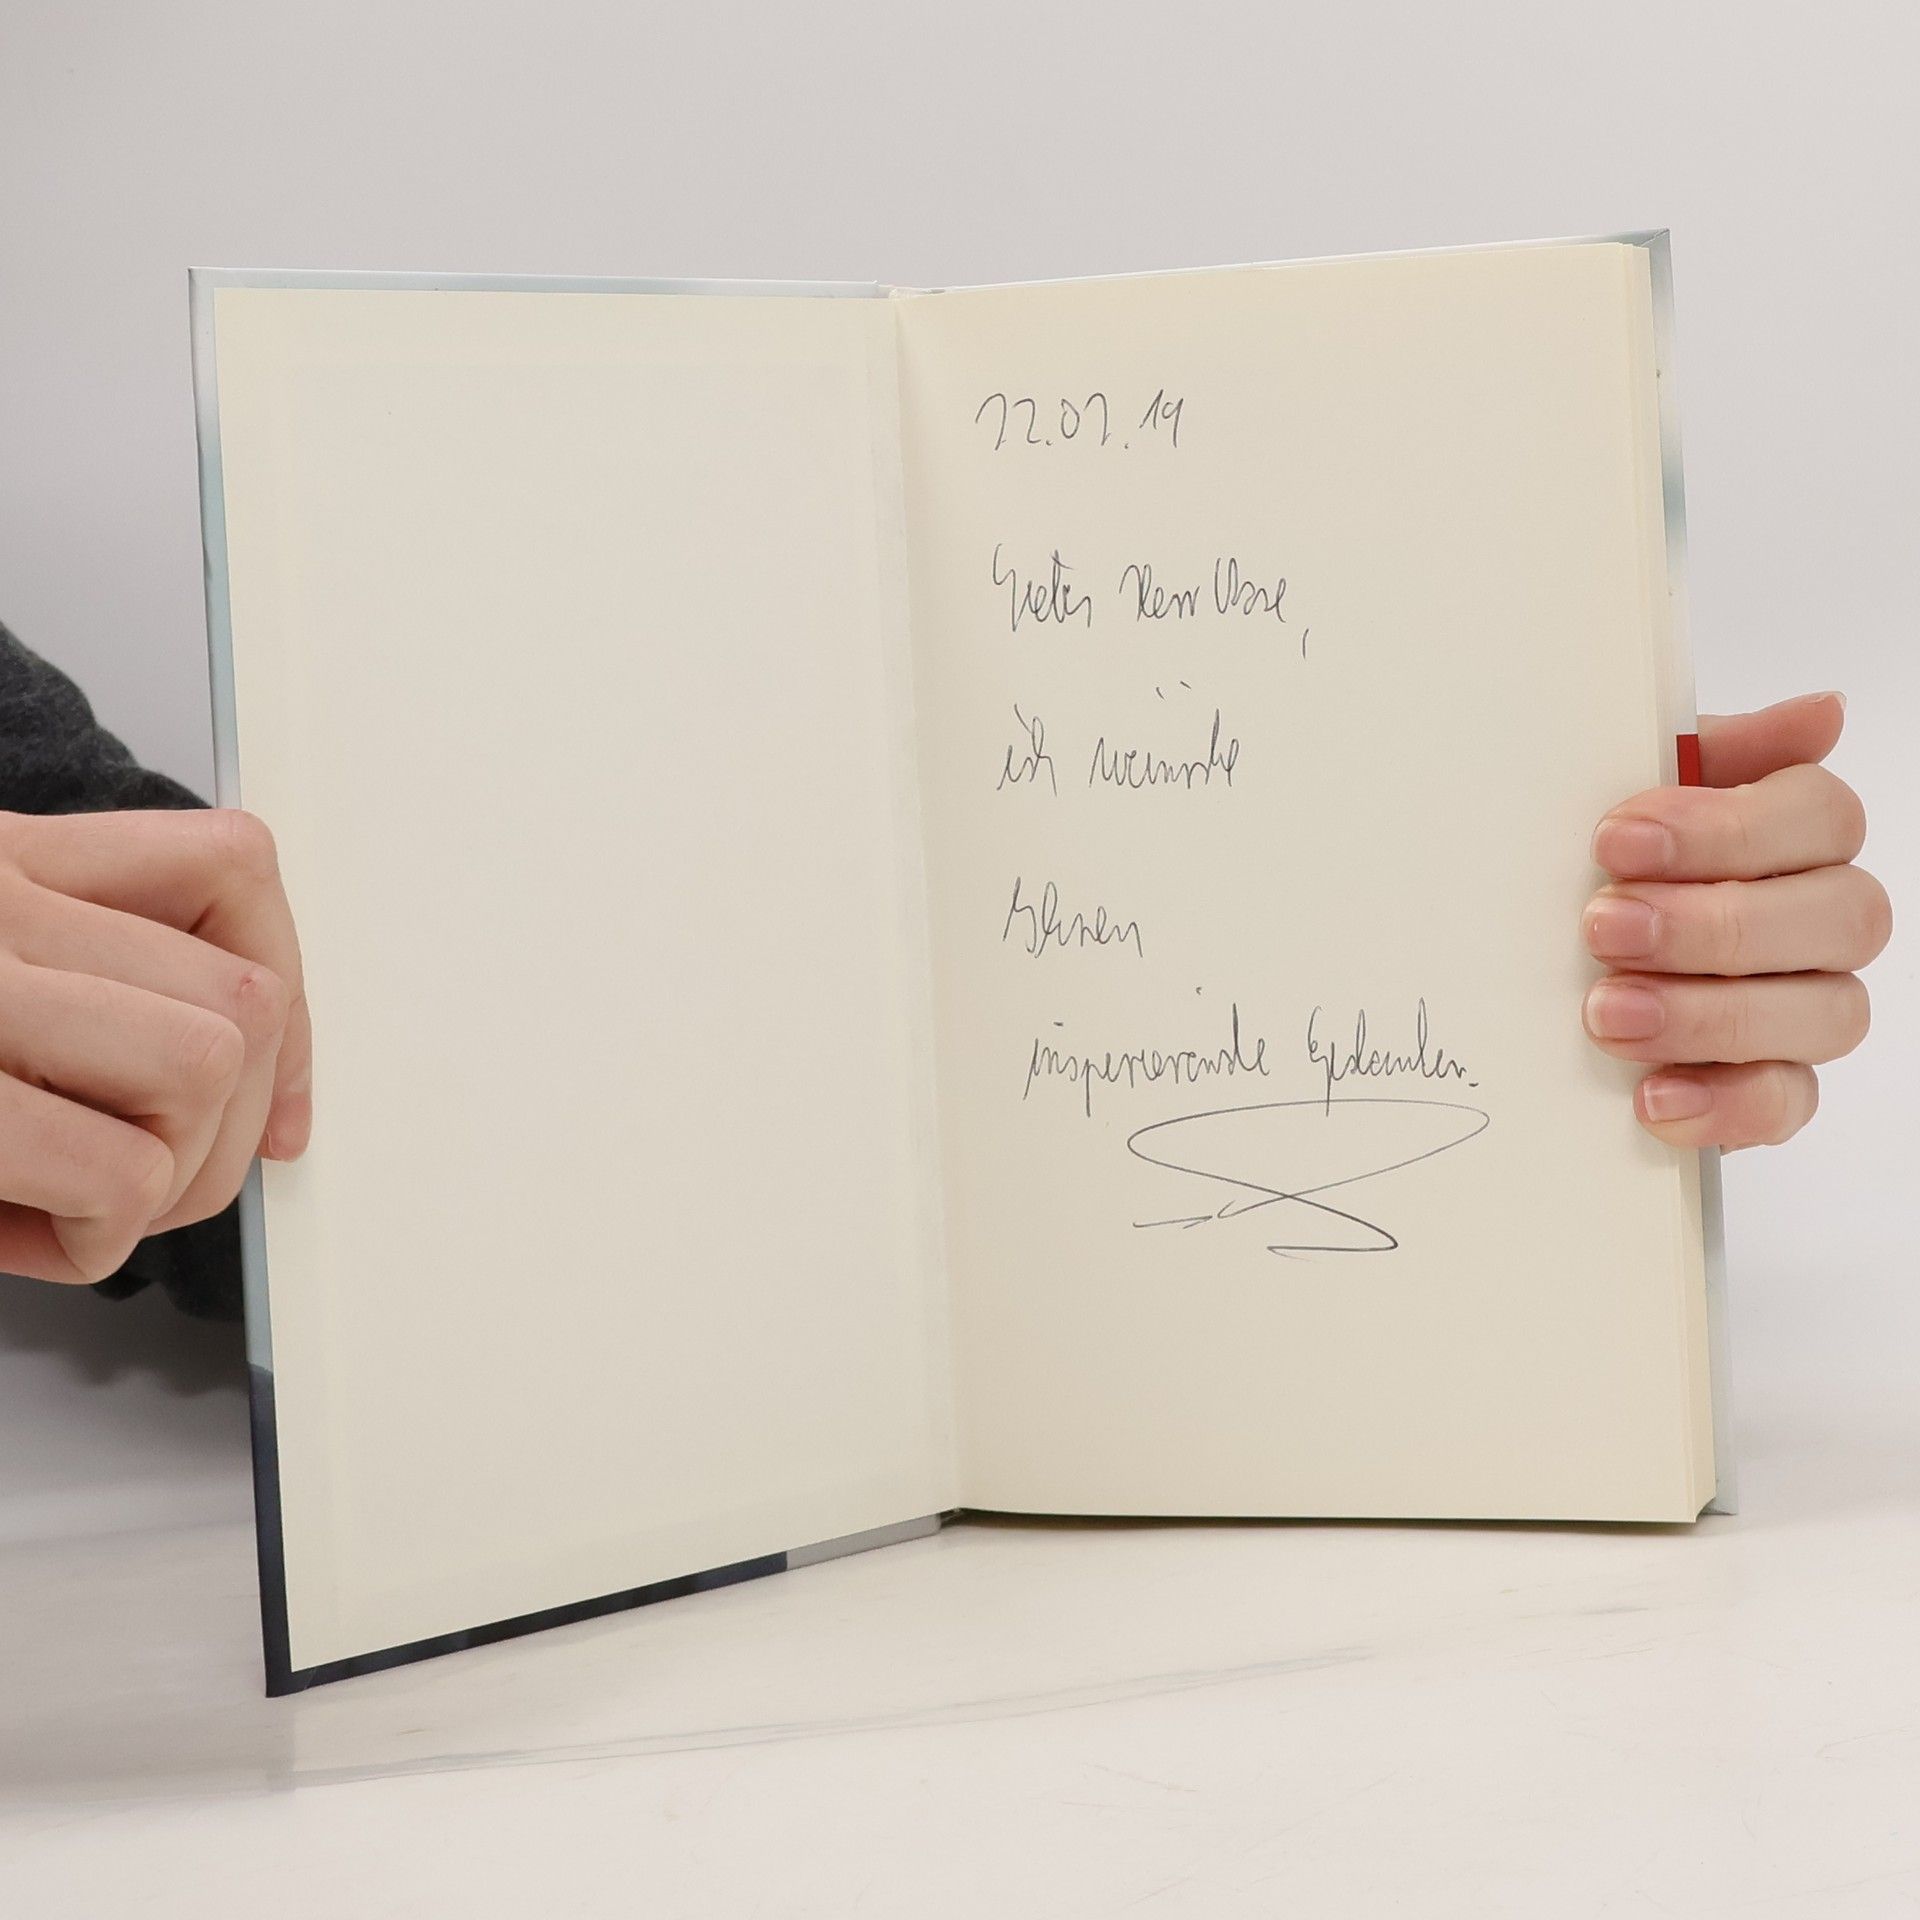 22.07.19
Guten Herr
ich wünsche
Ihnen
inspirierende Gedanken.